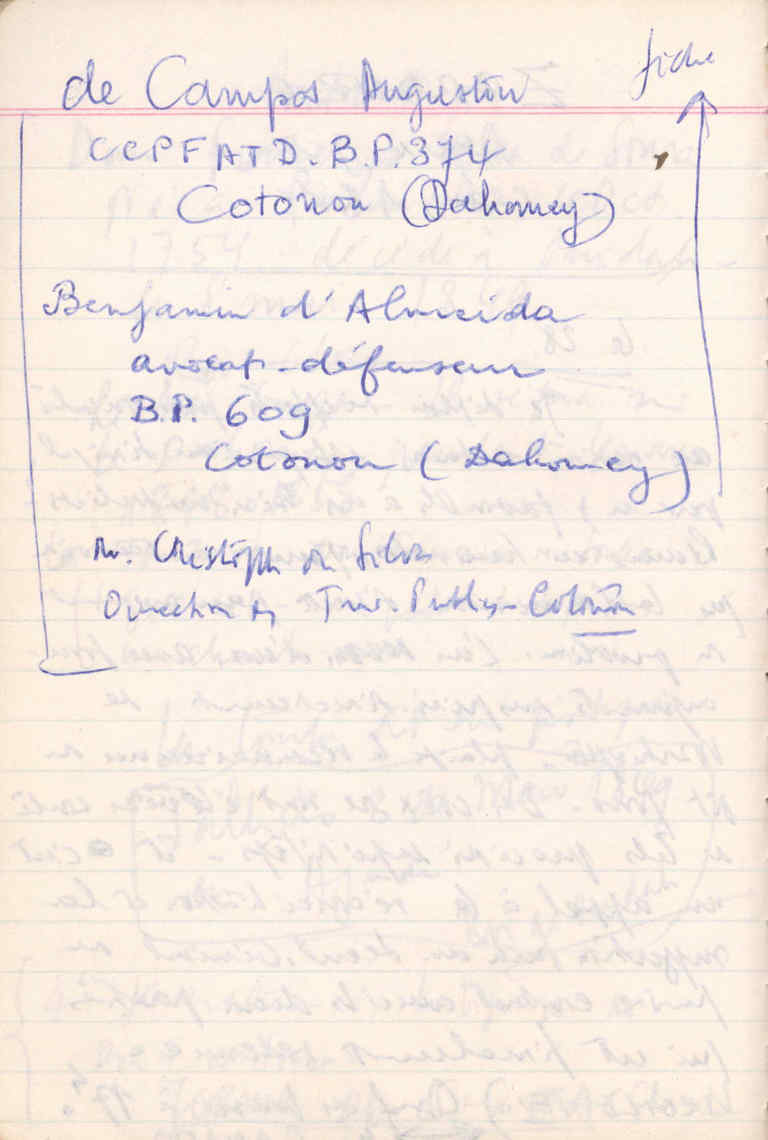 fiche
de Campos Augustin
CCPFATD. B.P. 374
Cotonou (Dahomey)
Benjamin d'Almeida
avocat-défenseur
B.P. 609
Cotonou (Dahomey)
Christoph da Silva
Direction Trav. Publics - Cotonou